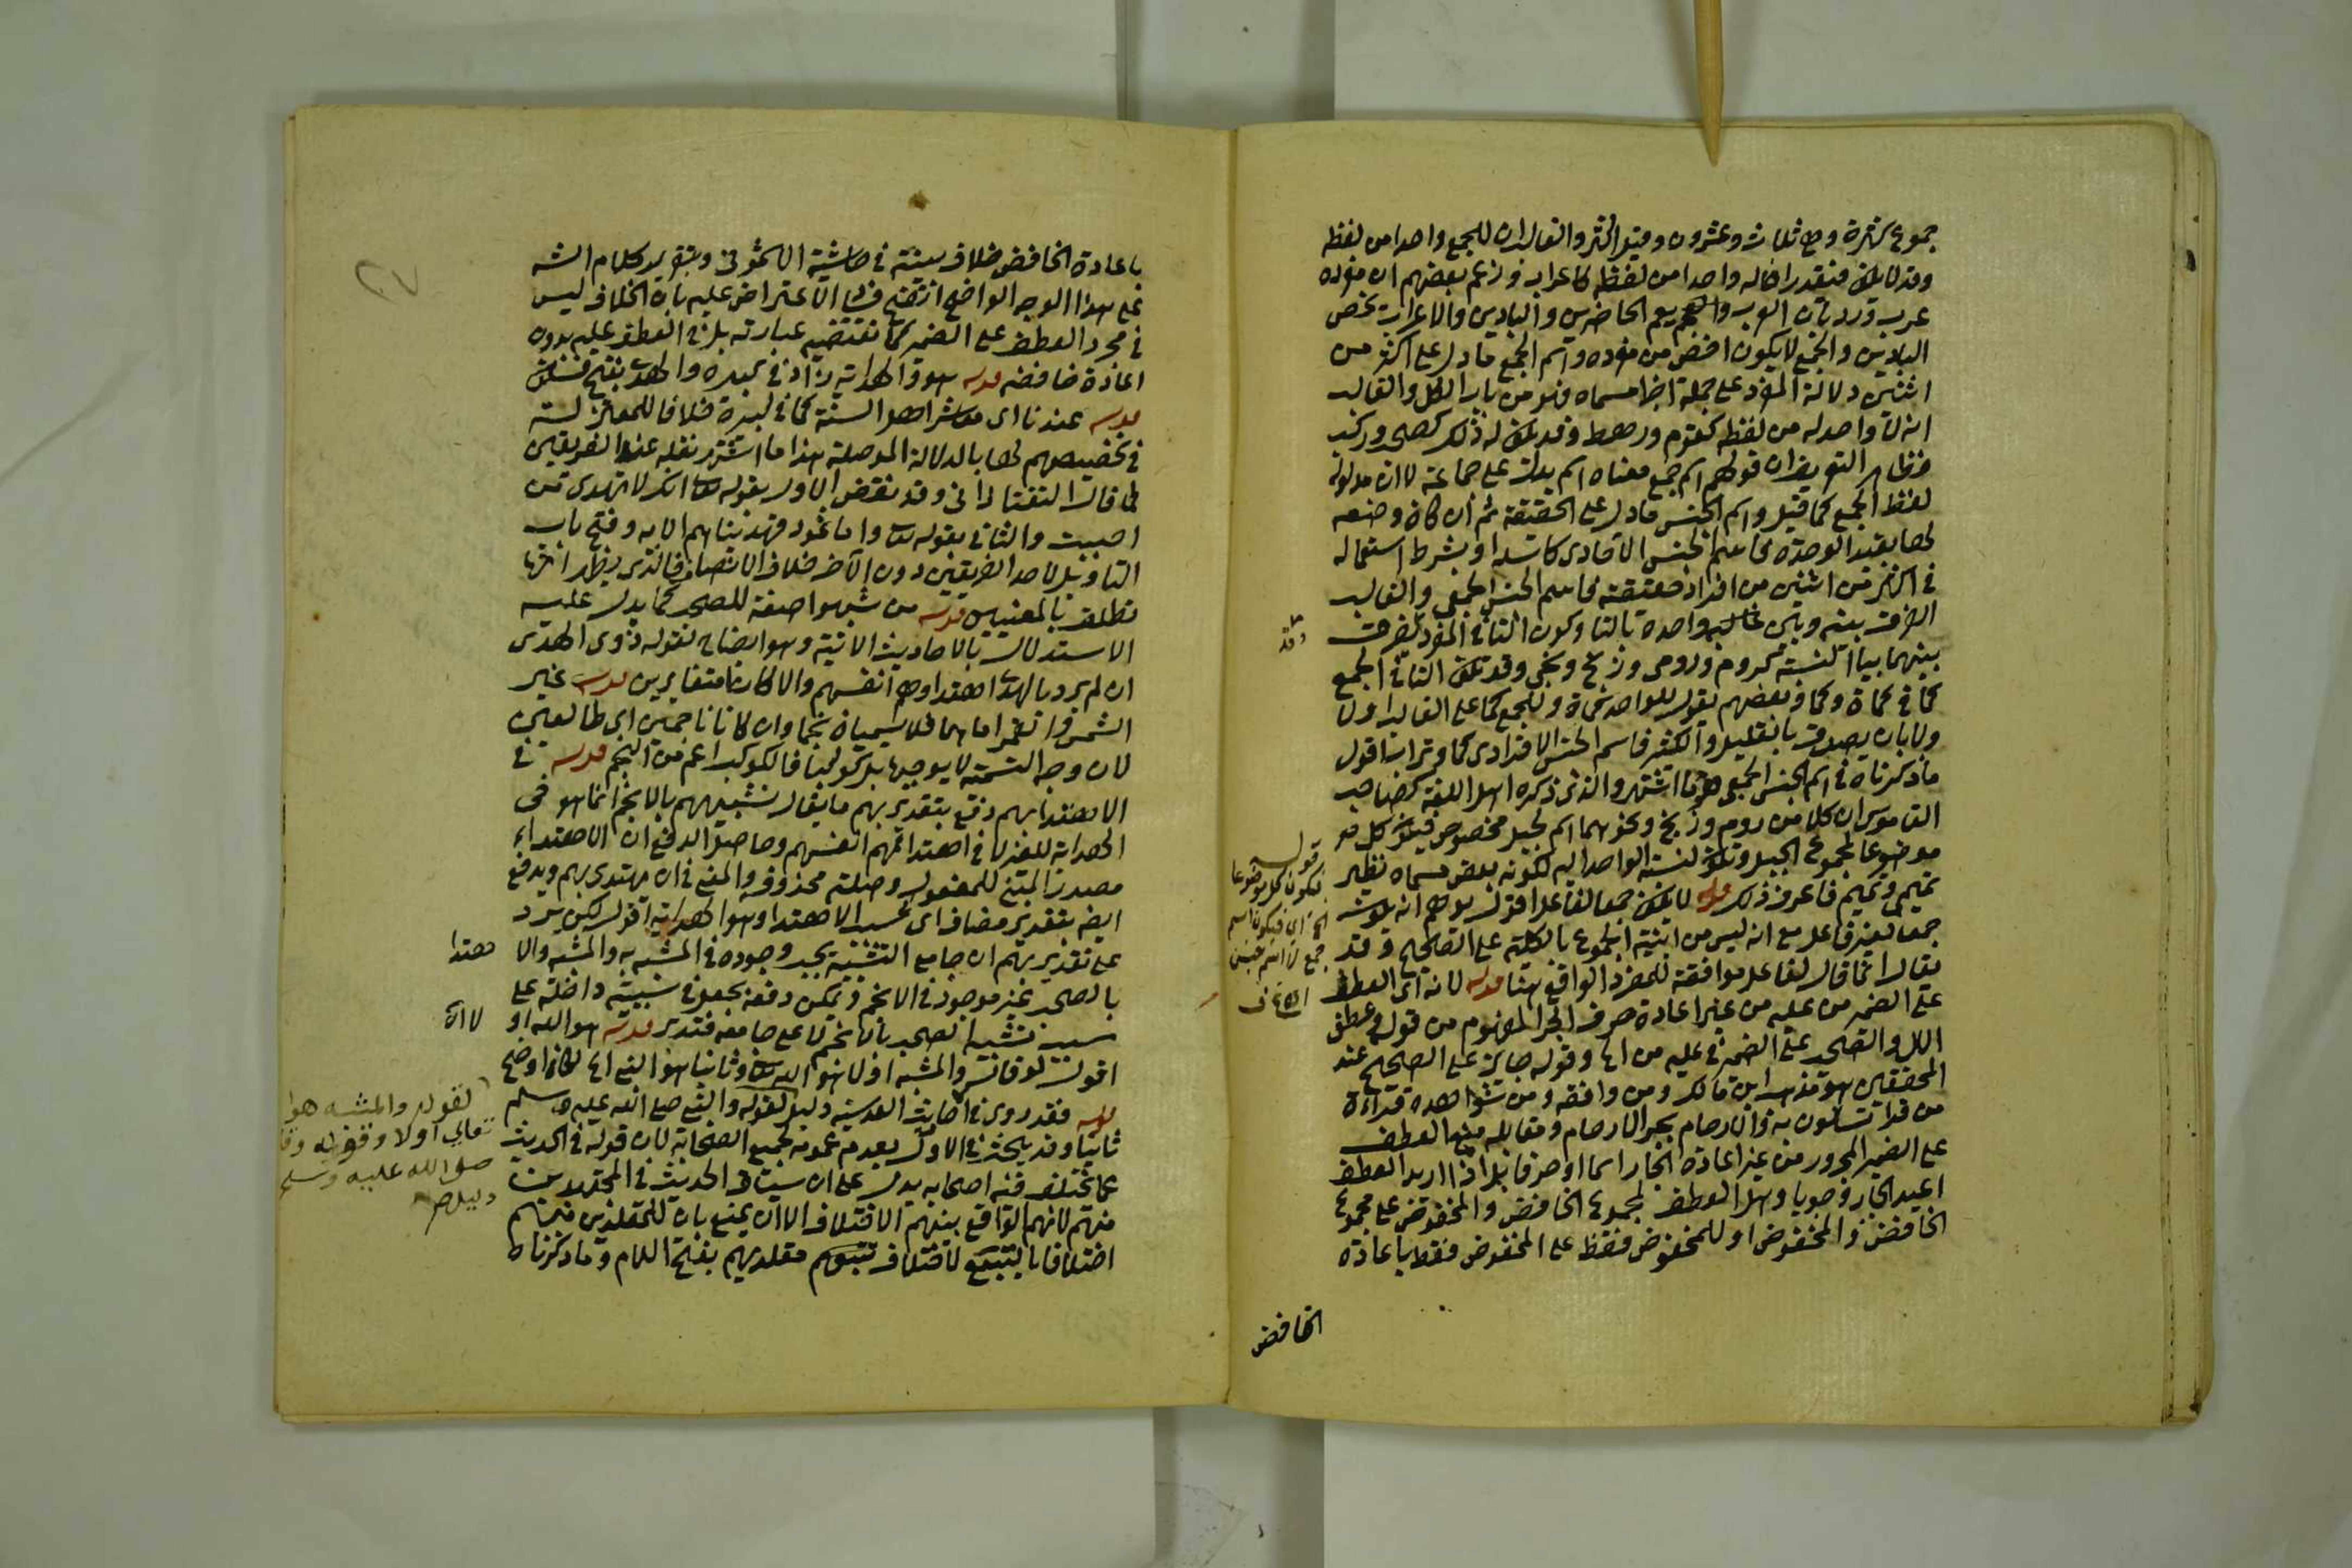 جموع كثرة وهي ثلاث وعشرون وقيل اكثر والغالب ان للجمع واحدا من لفظه
وقد لا يكون فيقدر اذ له واحدا من لفظه كاعراب وزعم بعضهم ان مفرده
عرب ورد بان العرب يعم الحاضرين والبادين والاعراب تخص
البادين والجمع لا يكون اخص من مفرده واسم الجمع ما دل على اكثر من
اثنين دلالة المفرد على جملة اجزا مسماه فهو من باب الكل والغالب
انه لا واحد له من لفظه كقوم ورهط وقد يكون له ذلك كصحب وركب
فظاهر التعريف ان قولهم اسم جمع معناه اسم يدل على جماعة لا ان مدلوله
لفظ الجمع كما قيل واسم الجنس ما دل على الحقيقة ثم ان كان وضعه
لها بقيد الوحدة فاسم الجنس الاحادى كاسد او بشرط استعماله
في اكثر من اثنين من افراد حقيقته فاسم الجنس الجمعي والغالب
الفرق بينه وبين واحده بالتا وكون التا في المفرد
بينهما بيا النسبة كروم ورومى وزنج وزنجى وقد تكون التا في الجمع
كما في كماة وكما وبعضهم يقول للواحد كماة وللجمع كما على الغالب
بان يصدق بالقليل والكثير فاسم الجنس الافرادى كما وتراب اقول
ما ذكرناه في اسم الجنس الجمعى هو ما اشتهر والذى ذكره اهل اللغة كصاحب
القاموس ان كلا من روم وزنج ونحوهما اسم لجيل مخصوص فيكون كل
موضوعا لمجموع الجيل وتكون لنسبة الواحد اليه لكونه بعض مسماه نظير
تميمى وتميم فاعرف ذلك قوله لا يكون جمعا لفاعل اقول يوهم انه يكون
جمعا لغير فاعل مع انه ليس من ابنية الجموع بالكلية على الصحيح وقد
يقال انما قال لفاعل موافقة للمفرد الواقع هنا قوله لانه اى العطف
على الضمير من عليه من غير اعادة حرف الجر المفهوم من قول وعطف
الال والصحب على الضمير في عليه من وقوله جايز على الصحيح عند
المحققين هو مذهب ابن مالك ومن وافقه ومن شواهده قراءة
من قرا تسالون به والارحام بجر الارحام ومقابله منع العطف
على الضمير المجرور من غير اعادة الجار اسما او حرفا بل اذا اريد العطف
اعيد الجار وجوبا وهل العطف لمجموع الخافض والمخفوض على مجموع
الخافض والمخفوض او للمخفوض فقط على المخفوض فقط باعادة
قول
فيكون كل موضوعا
الخ اى فيكون اسم
جمع لا اسم جنس
الخافض
باعادة الخافض خلاف بينته في حاشية الاشمونى وبتقرير كلام الشه
على هذا الوجه الواضح اتضح فساد الاعتراض عليه بان الخلاف ليس
في مجرد العطف على الضمير كما تقتضيه عبارته بل في العطف عليه بدون
اعادة خافضه قوله هو والهداية زاد في كبيره والهدى بفتح فسكون
قوله عندنا اى معاشر اهل السنة كما في كبيره خلافا للمعتزلة
في تخصيصهم لها بالدلالة الموصلة هذا ما اشتهر نقله عن الفريقين
كما قال التفتازانى وقد نقض الاول بقوله تعالى انك لا تهدى من
احببت والثانى بقوله تعالى واما ثمود فهديناهم الايه وفتح باب
التاويل لاحد الفريقين دون الاخر خلاف الانصاف فالذى يظهر انها
تطلق بالمعنيين قوله من شبهوا صفة للصحب كما يدل عليه
الاستدلال بالاحاديث الاتية وهو ايضاح لقوله ذوى الهدى
ان لم يرد بالهدى اهتداوهم انفسهم والا كانا متغايرين قوله غير
الشمس والقمر اما هما فلا يسميان نجما وان كانا ناجمين اى طالعين
لان وجه التسمية لا يوجبها بل فالكوكب اعم من النجم قوله في
الاهتدا بهم دفع بتقدير بهم ما يقال تشبيههم بالانجم انما هو في
الهداية للغير لا في اهتدائهم انفسهم وحاصل الدفع ان الاهتداء
مصدر المبنى للمفعول وصلته محذوفه والمعنى في ان يهتدى بهم ويدفع
ايضه بتقدير مضاف اى الاهتدا وهو الهداية اقول لكن يرد
على تقدير بهم ان جامع التشبيه يجب وجوده في المشبه به والمشبه والا
بالصحب غير موجود في الانجم ويمكن دفعه بجعل في سببية داخلة على
سبب تشبيه الصحب بالانجم لا على جامعه فتدبر قوله هو الله او
اقول لو قال والمشبه اولا هو الله تعالى وثانيا هو النبى لكان اوضح
قوله فقد روى في احاديث القدسية دليل لقوله والنبى صلى الله عليه وسلم
ثانيا وقد يبحث في الاول بعدم عمومه لجميع الصحابة لان قوله في الحديث
عما يختلف فيه اصحابه يدل على ان سياق الحديث في المجتهدين
منهم لانهم الواقع بينهم الاختلاف الا ان يمنع بان للمقلدين منهم
اختلافا بالتبع لاختلاف متبوعهم مقلديهم بفتح اللام وما ذكرناه
هتدا
لا ان
لقوله والمشبه هوا
تعالى اولا وقوله
صلى الله عليه وسلم
دليل